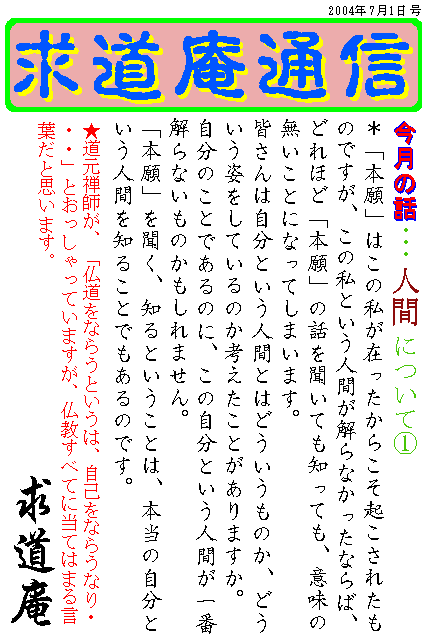 2004年7月1日号
求道庵通信
今月の話・・・人間について①
＊「本願」はこの私が在ったからこそ起こされたも
のですが、この私という人間が解らなかったならば、
どれほど「本願」の話を聞いても知っても、意味の
無いことになってしまいます。
皆さんは自分という人間とはどういうものか、どう
いう姿をしているのか考えたことがありますか。
自分のことであるのに、この自分という人間が一番
解らないものかもしれません。
「本願」を聞く、知るということは、本当の自分と
いう人間を知ることでもあるのです。
★道元禅師が、「仏道をならうというは、自己をならうなり・
・・」とおっしゃっていますが、仏教すべてに当てはまる言
葉だと思います。
求道庵